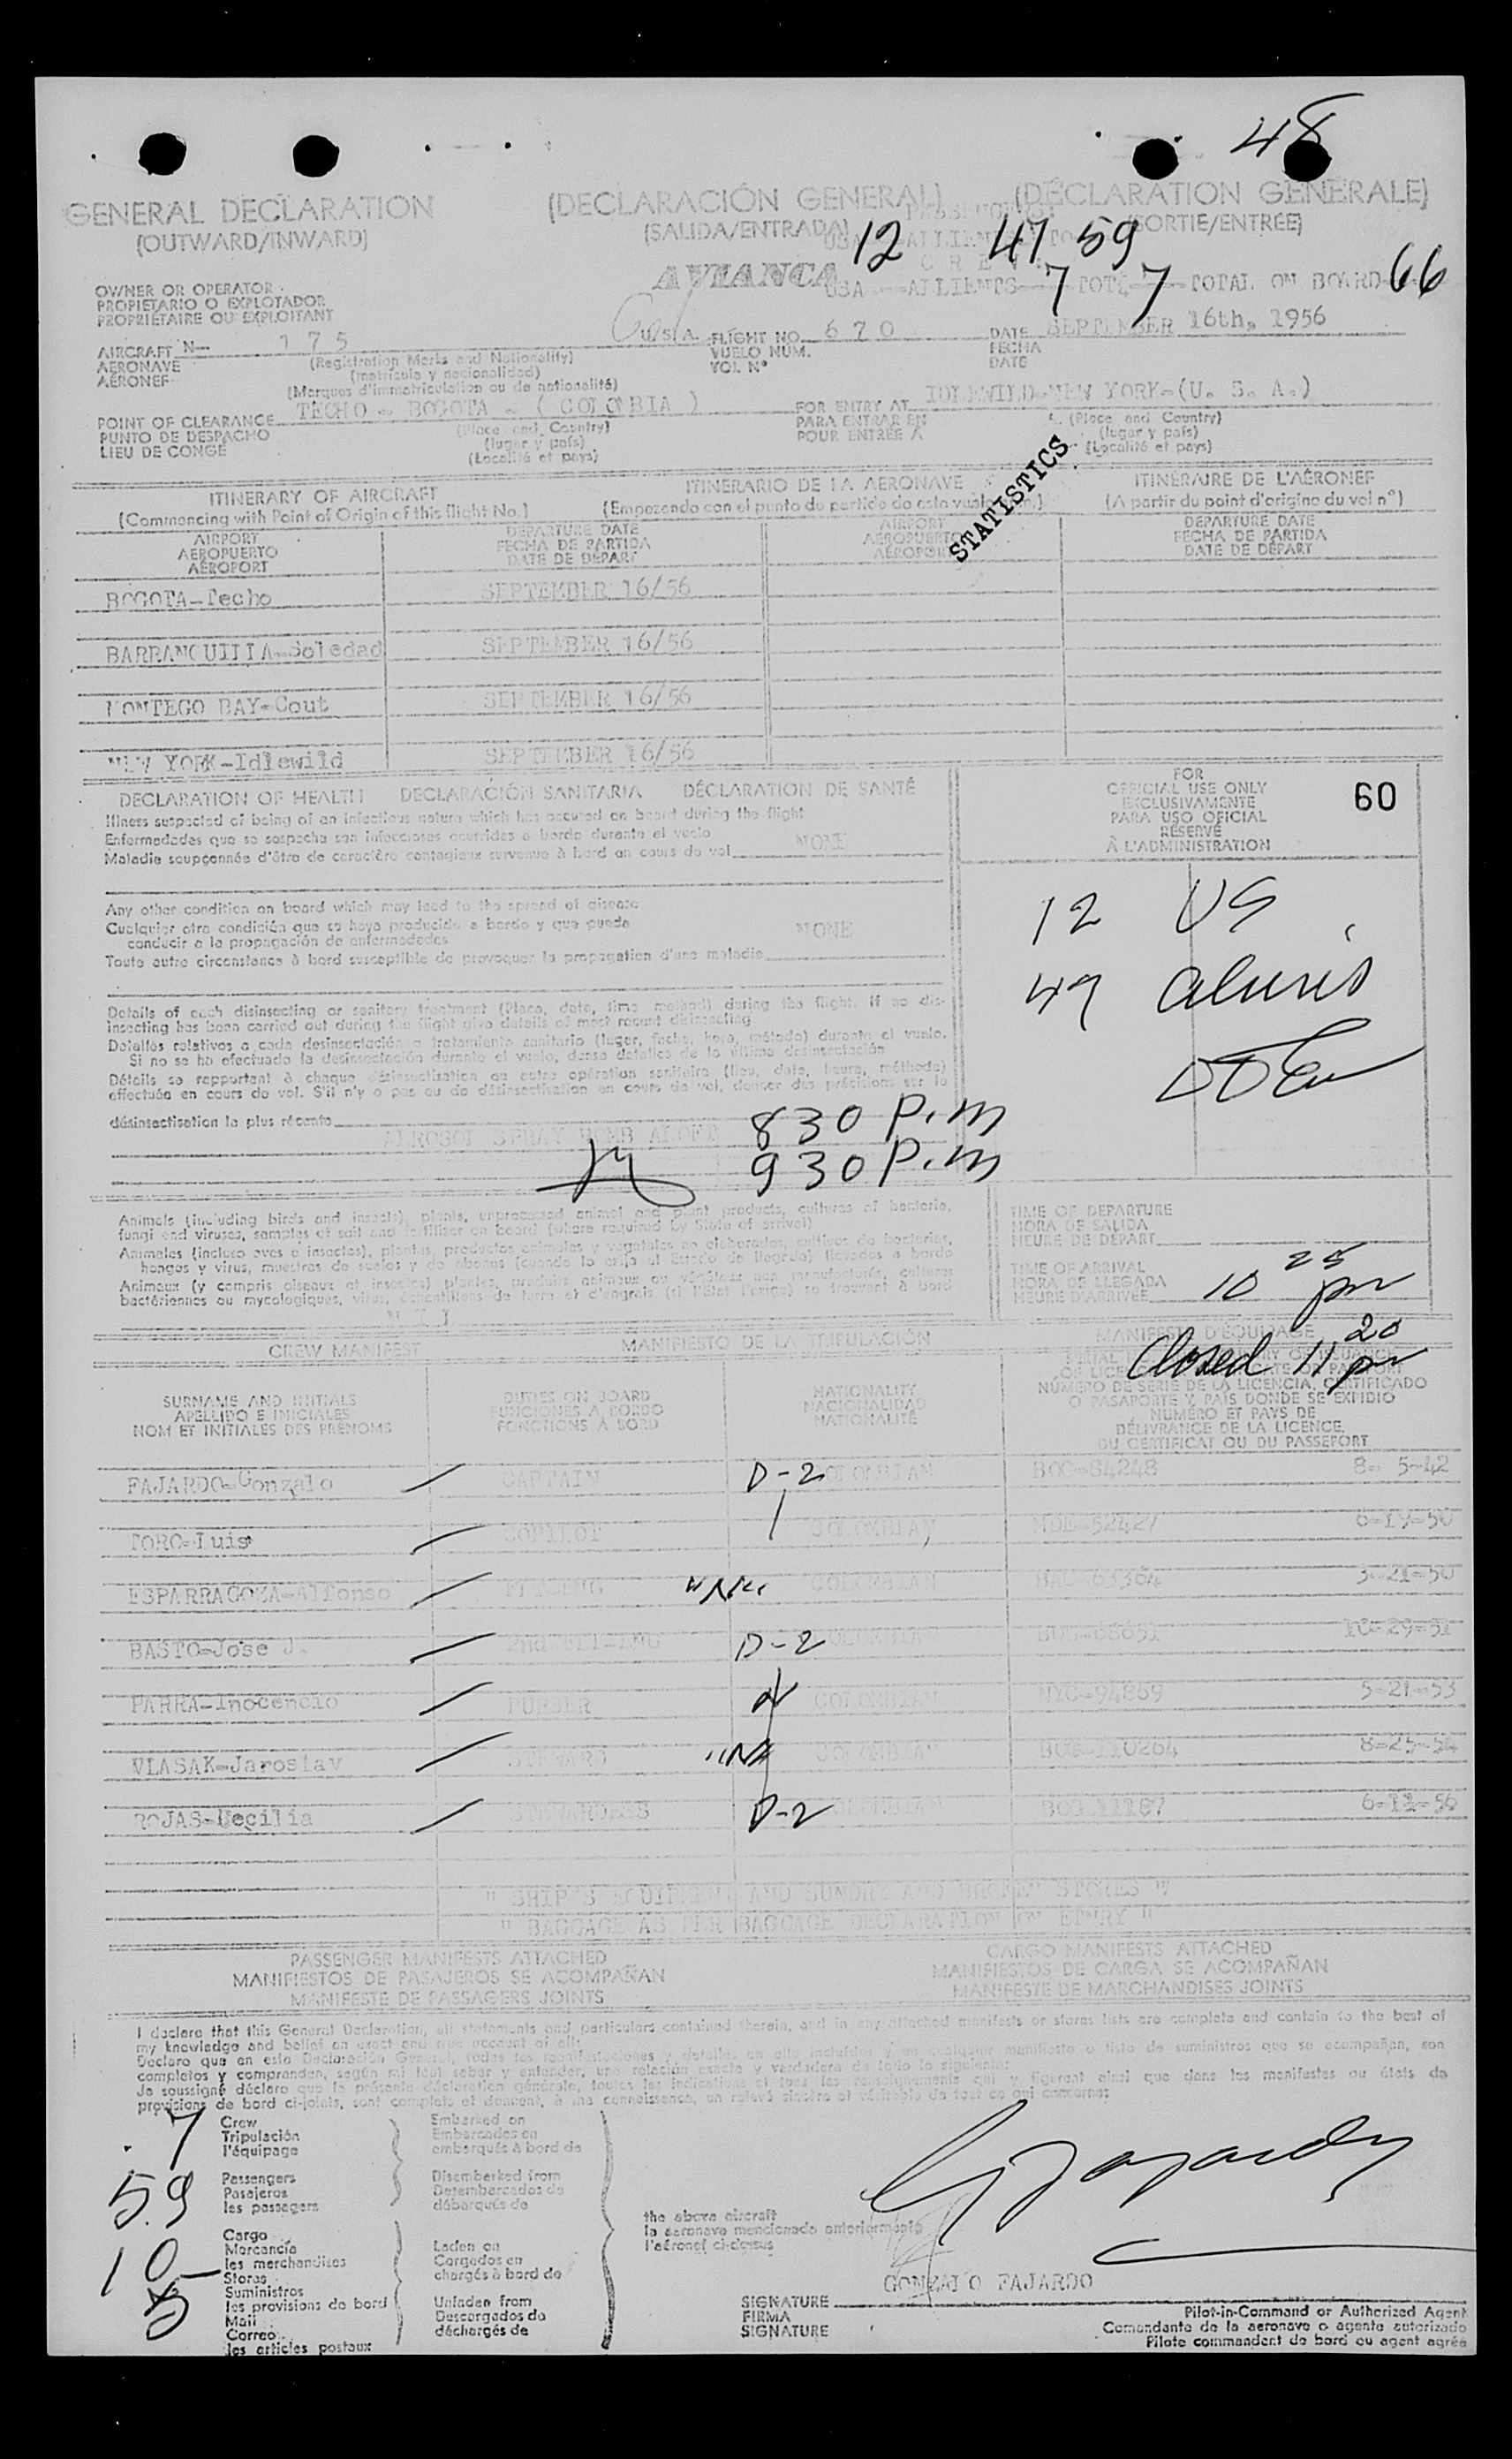 48
GENERAL DECLARATION (DECLARACIÓN GENERAL) (DÉCLARATION GÉNÉRALE)
(OUTWARD/INWARD) (SALIDA/ENTRADA) (SORTIE/ENTRÉE)
12 47 59
AVIANCA
USA ALLIENTS 7 TOT 7 TOTAL ON BOARD 66
OWNER OR OPERATOR
PROPIETARIO O EXPLOTADOR
PROPRIÉTAIRE OU EXPLOITANT
AIRCRAFT N- 175 U.S.A. FLIGHT NO. 670 DATE SEPTEMBER 16th, 1956
AERONAVE (Registration Marks and Nationality) VUELO NÚM. FECHA
AÉRONEF (matrícula y nacionalidad) VOL Nº DATE
(Marques d'immatriculation ou de nationalité)
POINT OF CLEARANCE TECHO - BOGOTA - ( COLOMBIA ) FOR ENTRY AT IDLEWILD-NEW YORK-(U. S. A.)
PUNTO DE DESPACHO (Place and Country) PARA ENTRAR EN (Place and Country)
LIEU DE CONGÉ (lugar y país) POUR ENTRÉE À (lugar y país)
(Localité et pays) (Localité et pays)
STATISTICS
ITINERARY OF AIRCRAFT ITINERARIO DE LA AERONAVE ITINÉRAIRE DE L'AÉRONEF
(Commencing with Point of Origin of this flight No.) (Empezando con el punto de partida de este vuelo (A partir du point d'origine du vol nº)
AIRPORT DEPARTURE DATE AIRPORT DEPARTURE DATE
AEROPUERTO FECHA DE PARTIDA AEROPUERTO FECHA DE PARTIDA
AÉROPORT DATE DE DÉPART AÉROPORT DATE DE DÉPART
BOGOTA-Techo SEPTEMBER 16/56
BARRANQUILLA-Soledad SEPTEMBER 16/56
MONTEGO BAY-Cout SEPTEMBER 16/56
NEW YORK-Idlewild SEPTEMBER 16/56
DECLARATION OF HEALTH DECLARACIÓN SANITARIA DÉCLARATION DE SANTÉ
FOR
OFFICIAL USE ONLY
EXCLUSIVAMENTE
PARA USO OFICIAL
RÉSERVÉ
À L'ADMINISTRATION
60
Illness suspected of being of an infectious nature which has occured on board during the flight
Enfermedades que se sospecha son infecciosas ocurridas a bordo durante el vuelo NONE
Maladie soupçonnée d'être de caractère contagieux survenue à bord en cours de vol
Any other condition on board which may lead to the spread of disease
Cualquier otra condición que se haya producido a bordo y que pueda NONE
conducir a la propagación de enfermedades
Toute autre circonstance à bord susceptible de provoquer la propagation d'une maladie
12 US
47 aliens
Details of each disinsecting or sanitary treatment (Place, date, time method) during the flight. If no dis-
insecting has been carried out during the flight give details of most recent disinsecting
Detalles relativos a cada desinsectación o tratamiento sanitario (lugar, fecha, hora, método) durante el vuelo.
Si no se ha efectuado la desinsectación durante el vuelo, dense detalles de la última desinsectación
Détails se rapportant à chaque désinsectisation ou autre opération sanitaire (lieu, date, heure, méthode)
effectuée en cours de vol. S'il n'y a pas eu de désinsectisation en cours de vol, donner des précisions sur la
désinsectisation la plus récente
AEROSOL SPRAY BOMB ALOFT 830 P.m
930 P.m
Animals (including birds and insects), plants, unprocessed animal and plant products, cultures of bacteria,
fungi and viruses, samples of soil and fertiliser on board (where required by State of arrival)
Animales (incluso aves e insectos), plantas, productos animales y vegetales no elaborados, cultivos de bacterias,
hongos y virus, muestras de suelos y de abonos (cuando lo exija el Estado de llegada) llevados a bordo
Animaux (y compris oiseaux et insectes) plantes, produits animaux ou végétaux non manufacturés, cultures
bactériennes ou mycologiques, virus, échantillons de terre et d'engrais (si l'État l'exige) se trouvant à bord
TIME OF DEPARTURE
HORA DE SALIDA
HEURE DE DÉPART
TIME OF ARRIVAL
HORA DE LLEGADA
HEURE D'ARRIVÉE 10 25 pm
CREW MANIFEST MANIFIESTO DE LA TRIPULACIÓN MANIFESTE D'ÉQUIPAGE
Closed 11 20 pm
SURNAME AND INITIALS DUTIES ON BOARD NATIONALITY
APELLIDO E INICIALES FUNCIONES A BORDO NACIONALIDAD
NOM ET INITIALES DES PRÉNOMS FONCTIONS À BORD NATIONALITÉ
NÚMERO DE SERIE DE LA LICENCIA, CERTIFICADO
O PASAPORTE Y PAÍS DONDE SE EXPIDIÓ
NUMÉRO ET PAYS DE
DÉLIVRANCE DE LA LICENCE,
DU CERTIFICAT OU DU PASSEPORT
FAJARDO-Gonzalo CAPTAIN D-2 COLOMBIAN BOG-84248 8- 5-42
TORO-Luis COPILOT COLOMBIAN 52427 6-19-50
ESPARRAGOZA-Alfonso COLOMBIAN 63364 3-21-50
BASTO-Jose J. D-2 COLOMBIAN
PARRA-Inocencio PURSER COLOMBIAN NYC-94869 5-21-53
VLASAK-Jaroslav STEWARD COLOMBIAN BOG-110264
ROJAS-Cecilia STEWARDESS D-2 COLOMBIAN
" SHIP'S EQUIPMENT AND SUNDRY AND BROKEN STORES "
" BAGGAGE AS PER BAGGAGE DECLARATION ON ENTRY "
PASSENGER MANIFESTS ATTACHED CARGO MANIFESTS ATTACHED
MANIFIESTOS DE PASAJEROS SE ACOMPAÑAN MANIFIESTOS DE CARGA SE ACOMPAÑAN
MANIFESTE DE PASSAGERS JOINTS MANIFESTE DE MARCHANDISES JOINTS
I declare that this General Declaration, all statements and particulars contained therein, and in any attached manifests or stores lists are complete and contain to the best of
my knowledge and belief an exact and true account of all:
Declaro que en esta Declaración General, todas las manifestaciones y detalles en ella incluídos y en cualquier manifiesto o lista de suministros que se acompañan, son
completos y comprenden, según mi leal saber y entender, una relación exacta y verdadera de todo lo siguiente:
Je soussigné déclare que la présente déclaration générale, toutes les indications et tous les renseignements qui y figurent ainsi que dans les manifestes ou états de
provisions de bord ci-joints, sont complets et donnent, à ma connaissance, un relevé sincère et véritable de tout ce qui concerne:
7 Crew Embarked on
Tripulación Embarcados en
l'équipage embarqués à bord de
59 Passengers Disembarked from
Pasajeros Desembarcados de
les passagers débarqués de
10 Cargo
Mercancía Laden on
les merchandises Cargados en
Stores chargés à bord de
Suministros
les provisions de bord Unladen from
Mail Descargados de
Correo déchargés de
les articles postaux
the above aircraft
la aeronave mencionada anteriormente
l'aéronef ci-dessus
G Fajardo
GONZALO FAJARDO
SIGNATURE
FIRMA
SIGNATURE
Pilot-in-Command or Autherized Agent
Comandante de la aeronave o agente autorizado
Pilote commandant de bord ou agent agréé